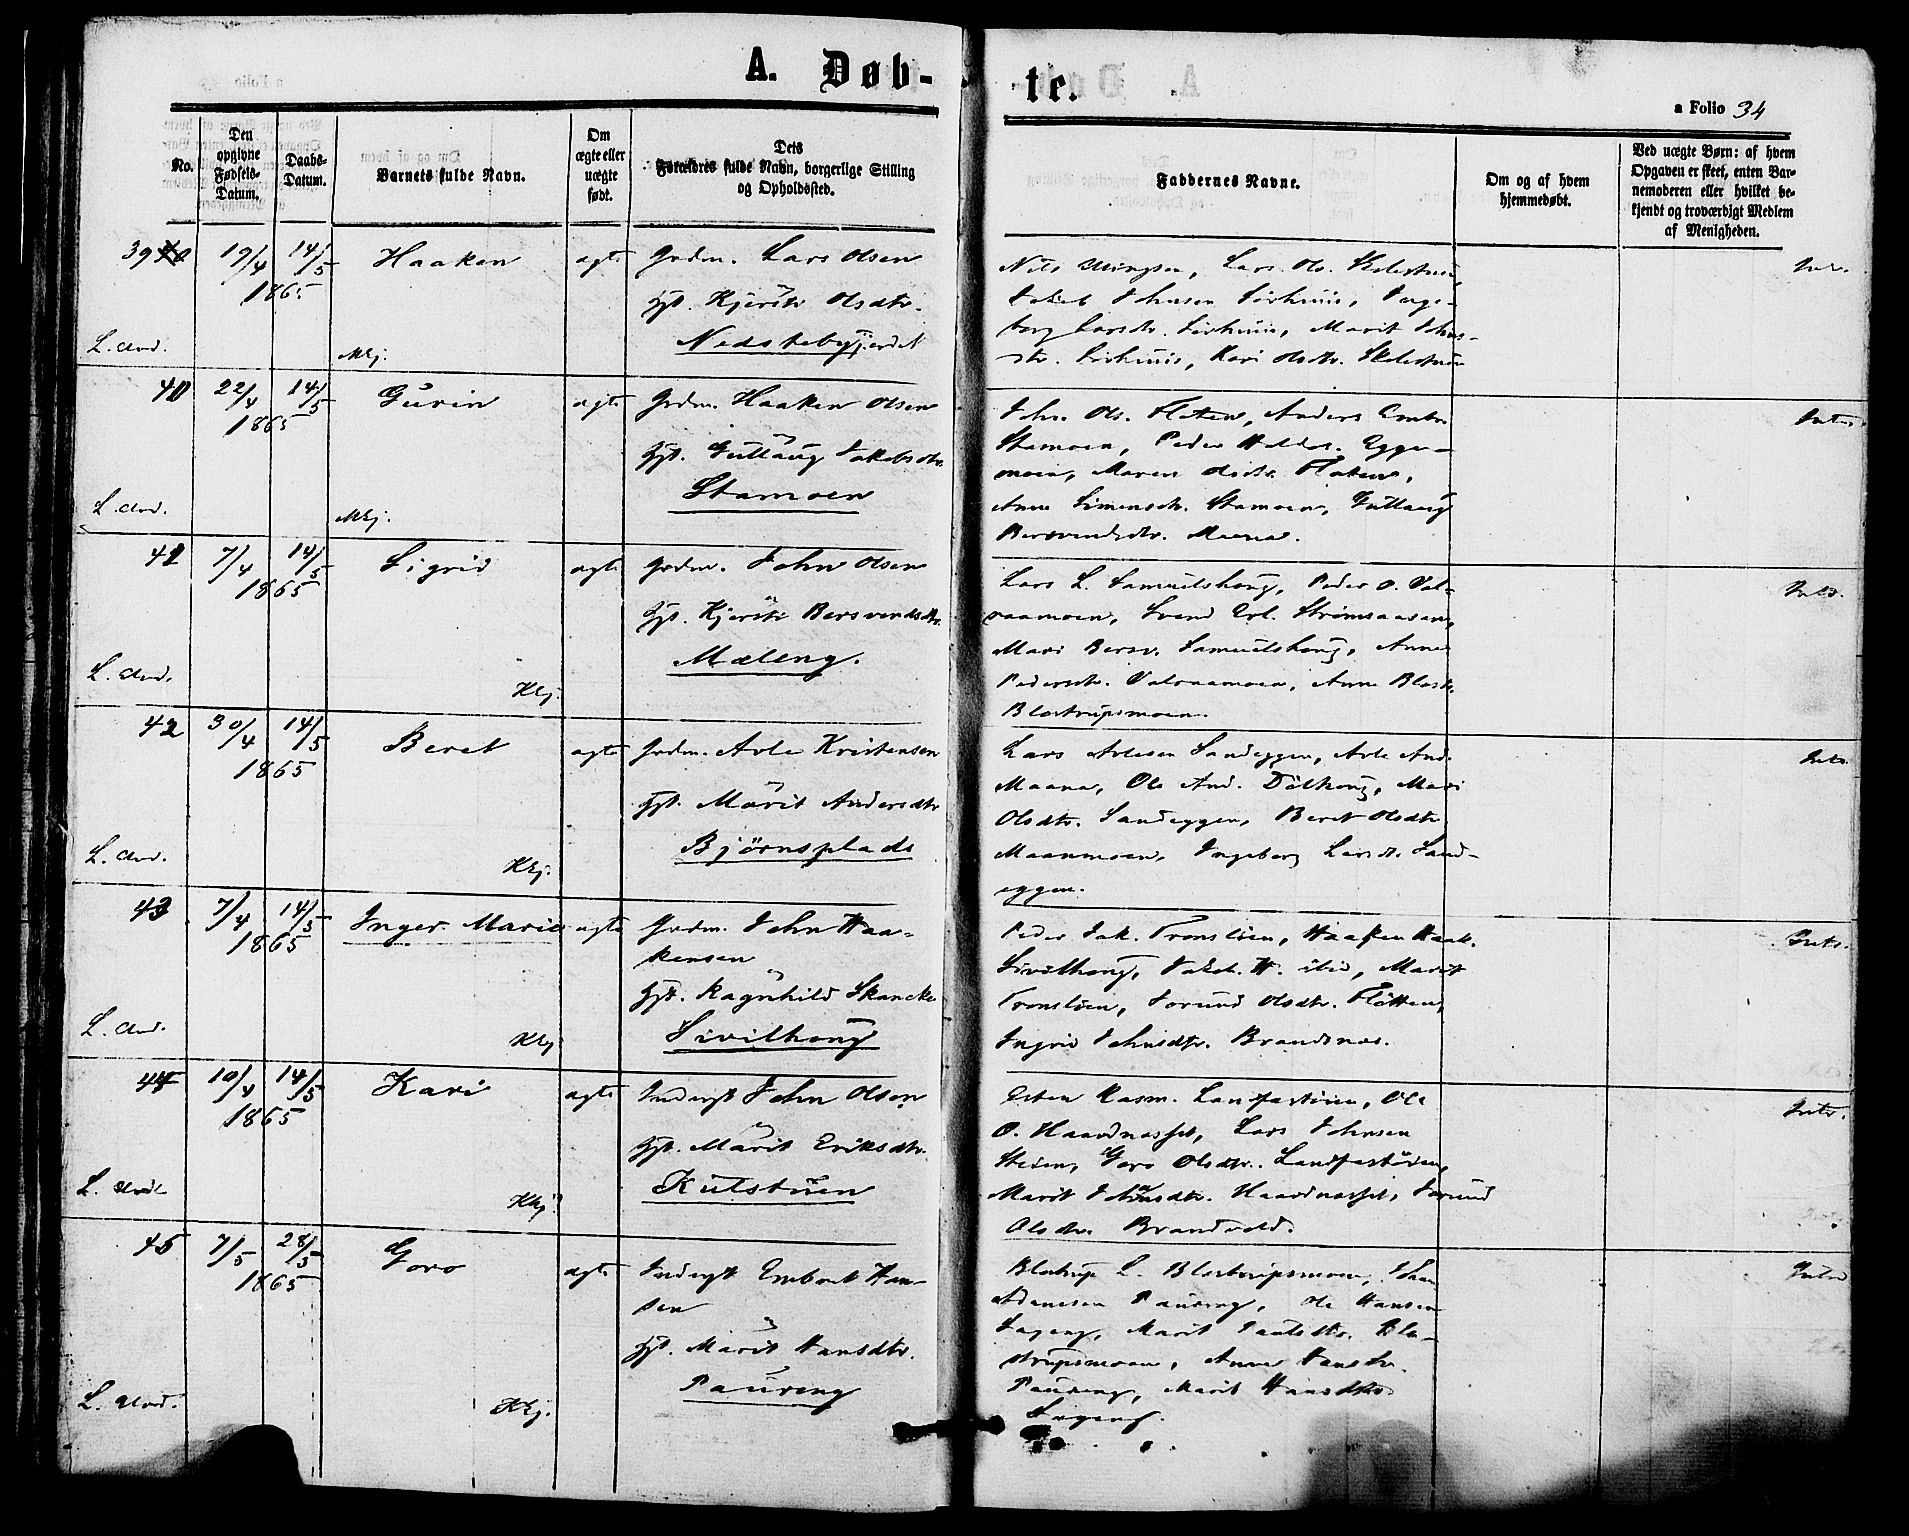 A. Døb-
te.
a Folio 34
No.
Den opgivne Fødsels-Datum.
Daabs-Datum.
Barnets fulde Navn.
Om ægte eller uægte født.
Dets Forældres fulde Navn, borgerlige Stilling og Opholdssted.
Faddernes Navne.
Om og af hvem hjemmedøbt.
Ved uægte Børn: af hvem Opgaven er skeet, enten Barnemoderen eller hvilket bekjendt og troværdigt Medlem af Menigheden.
39
19/4 14/5
1865
Haaken
ægte
Grdm. Lars Olsen
Hst. Kjersti Olsdtr.
Nedstebyjordet
L. And.
Mkj.
Lars Ols.
Jakob Johnsen
Marit Johns-
Kari Olsdtr.
40
22/4 14/5
1865
Guvin
ægte
Grdm. Haaken Olsen
Hst. Gullaug Jakobsdtr.
Stamoen
L. And.
Mkj.
John Ols. Floten, Anders Embr.
Stamoen, Peder Haldos. Egge-
moen, Maren Olsdtr. Floten,
Anne Simensdtr. Stamoen, Gullaug
Bersvendsdtr. Moene.
41
7/4 14/5
1865
Sigrid
ægte
Grdm. John Olsen
Hst. Kjersti Bersvendsdtr.
Mæleng.
L. And.
Hkj.
Lars L. Samuelshoug, Peder O. Val-
vaamoen, Svend Erl. Strømsaasen,
Mari Bersv. Samuelshoug, Anne
Pedersdtr. Valvaamoen, Anne Blostr.
Blostrupsmoen.
42
30/4 14/5
1865
Beret
ægte
Grdm. Arle Kristensen
Hst. Marit Andersdtr
Bjørnsplads
L. And.
Hkj.
Lars Arlesen Sandeggen, Arle And.
Maana, Ole And. Dølhoug, Mari
Olsdtr. Sandeggen, Beret Olsdtr
Maanmoen, Ingeborg Larsdt. Sand-
eggen.
43
7/4 14/5
1865
Inger Marie
ægte
Grdm. John Haa-
kensen
Hst. Ragnhild Skancke
Sivilhoug
L. And.
Hkj
Peder Jak. Tronsløien, Haaken Haak.
Sivilhoug, Jakob H. ibid, Marit
Tronsløien, Jorund Olsdtr. Fløtten,
Ingrid Johnsdtr. Brandnæs.
44
10/4 14/5
1865
Kari
ægte
Inderst John Olsen
Hst. Marit Eriksdtr.
Kulstuen
L. And.
Hkj.
Esten Rasm. Landfastøien, Ole
O. Haardnasset, Lars Johnsen
Steien, Goro Olsdtr. Landfastøien,
Marit Johnsdtr. Haardnasset, Jorund
Olsdtr. Brandvold.
45
7/5 28/5
1865
Goro
ægte
Inderst Embret Han-
sen
Hst. Marit Hansdtr.
Paureng
L. And.
Hkj.
Blostrup L. Blostrupsmoen,
Paureng, Ole Hansen
Marit Paulsdtr. Blo-
strupsmoen, Anne Hansdtr.
Paureng, Marit Hansdtr.